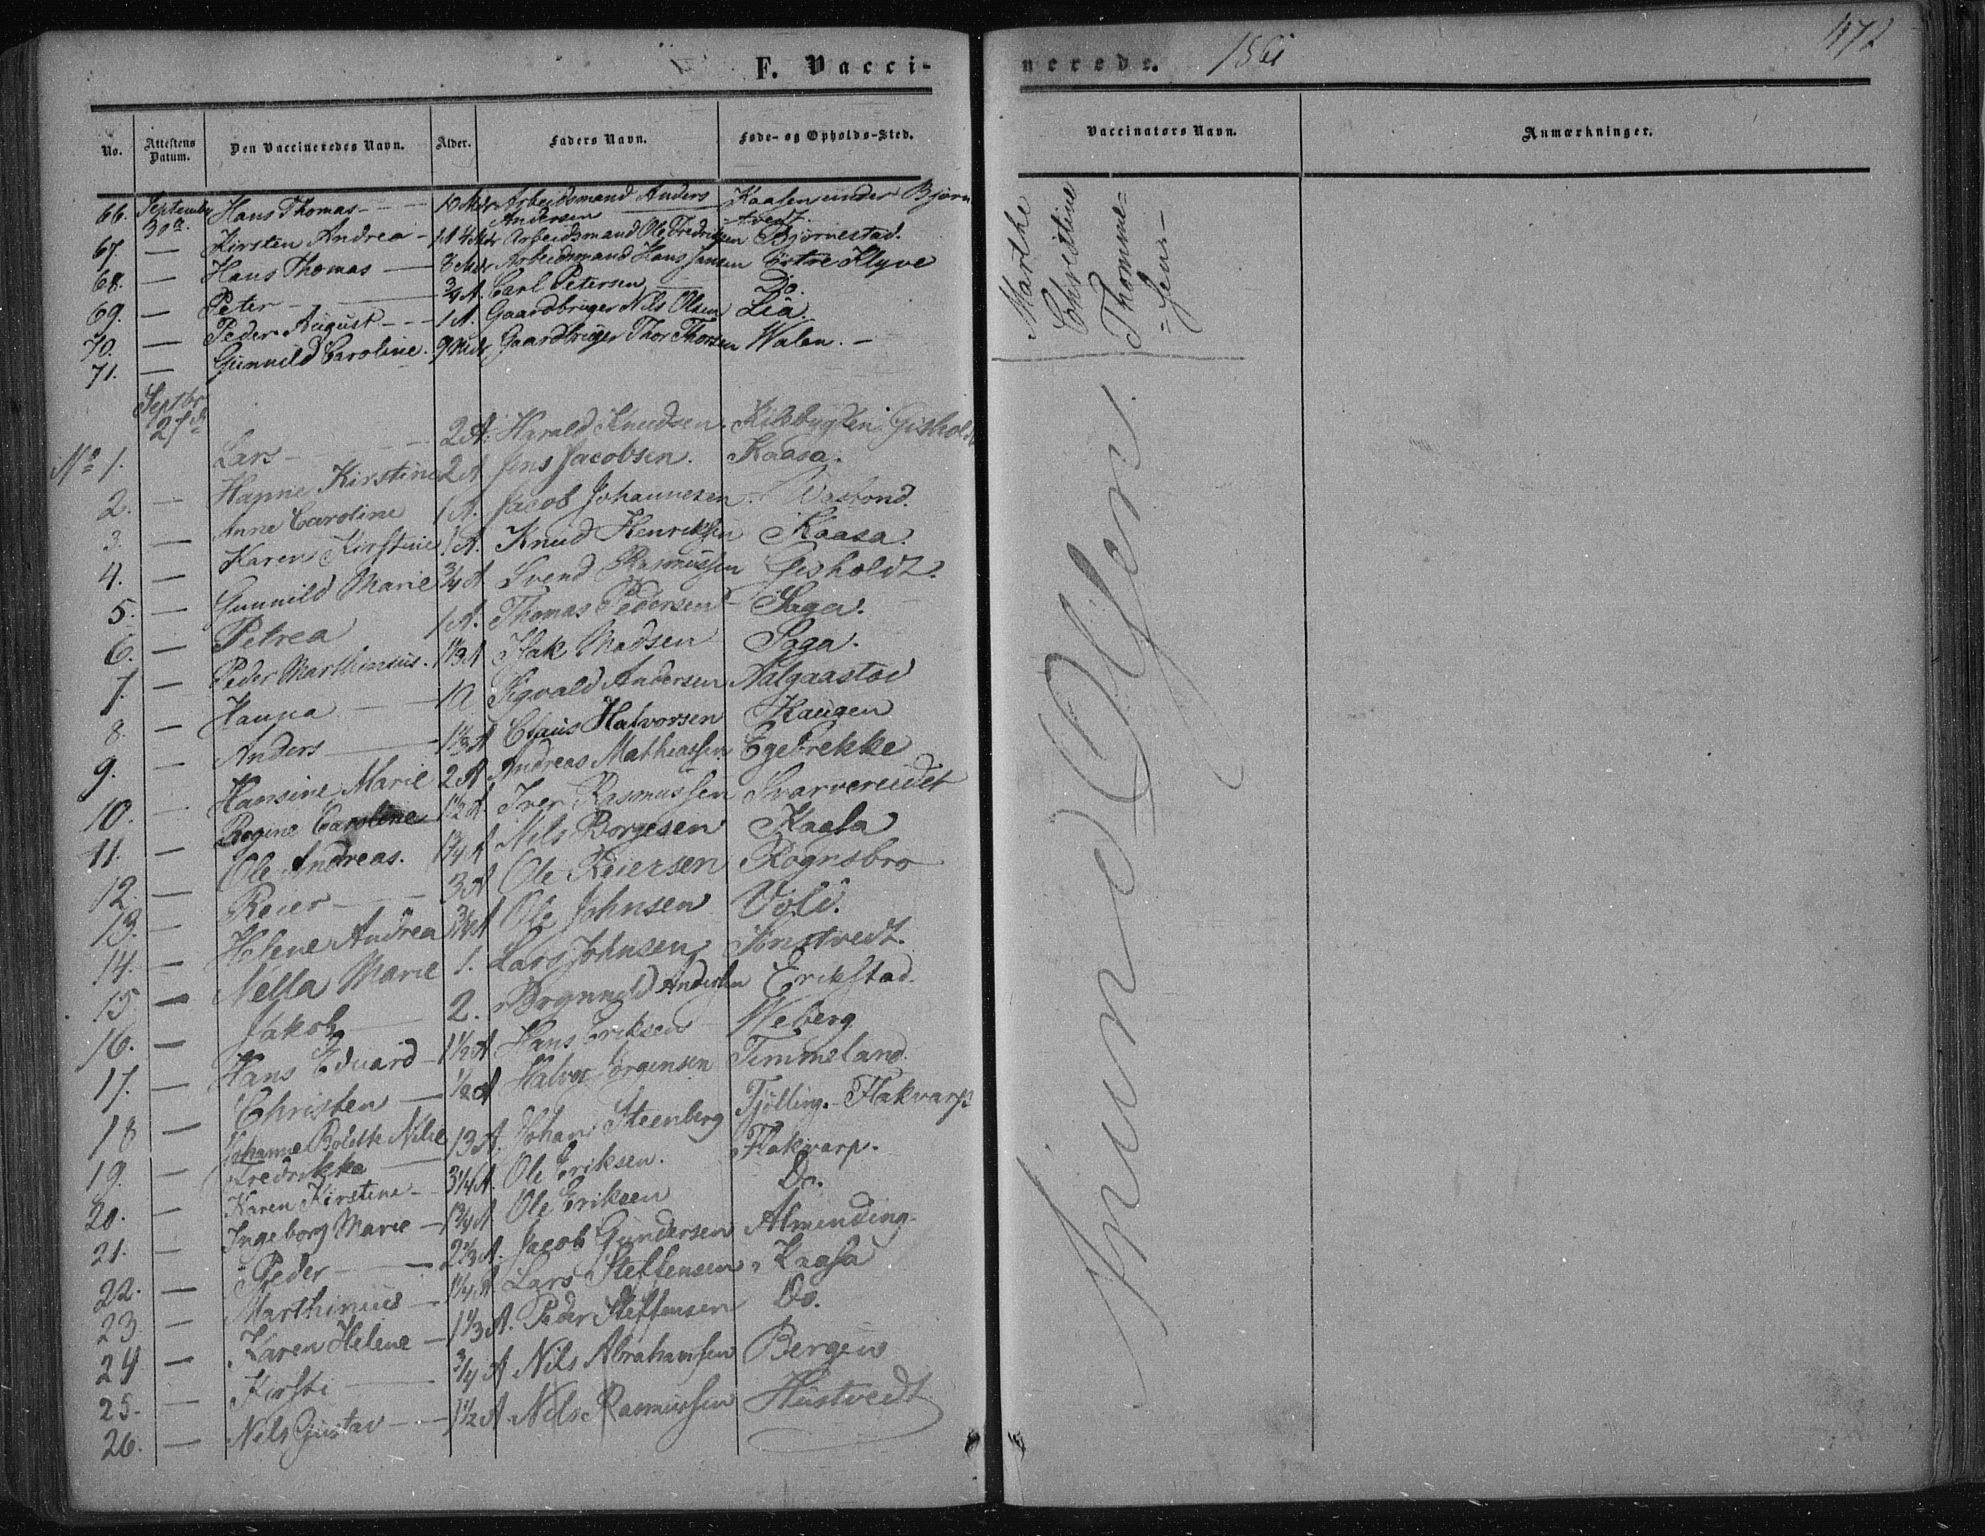 F. Vacci-
nerede.
1861
472
No.
Attestens Datum.
Den Vaccineredes Navn.
Alder.
Faders Navn.
Føde- og Opholds-Sted.
Vaccinators Navn.
Anmærkninger.
66. September 30te Hans Thomas - - - 10 Mdr Arbeidsmand Anders Andersen Kaasen under Bjørn-tvedt.
67. — Kirsten Andrea - 1 A Mdr Arbeidsmand Ole Fredriksen Bjørnestad.
68. — Hans Thomas — 6 Mdr Arbeidsmand Hans Jansen østre Klyve
69. — Peter — 3/4 A. Carl Petersen Do.
70. — Peder August - - - 1 A. Gaardbruger Nils Olsen Lia.
71. — Gunnild Caroline. 9 Mdr Gaardbruger Thor Thorsen Walen. -
Marthe
Christine
Thomme-
-sen-
Septbr
No 1. Lars - 2 A. Harald Knudsen. Kilebygten Gisholdt
2. — Hanne Kirstine 2 A Jens Jacobsen. Kaasa.
3. — Anne Caroline 1 A. Jacob Johannesen
4. — Karen Kirstine 1 A. Knud Henriksen Kaasa.
5. — Gunnild Marie 3/4 A Svend Rasmussen Gisholdt.
6. — Petrea 1 A. Thomas Pedersen - Saga.
7. — Peder Marthinius. 1 1/3 A Isak Madsen Saga.
8. — Hanna — 1 A Sigvald Andersen
9. — Anders — 1 1/3 A Claus Halvorsen Haugen
10. — Hansine Marie 2 A Andreas Mathiassen Egebrekke
11. — Regine Caroline 1 1/2 A Iver Rasmussen Svarvereidet
12. — Ole Andreas. 1 1/4 A Nils Borgesen Kaasa
13. — Reier — 3 A Ole Reiersen Rognsbro
14. — Helene Andrea 3/4 A Ole Johnsen Vold.
15 — Nella Marie 1. Lars Johnsen
16. — Jakob — 2. Brynnild Andersen Erikstad.
17. — Hans Eduard - 1 1/2 A Hans Eriksen Weberg
18 — Christen — 1/2 A Halvor Jørgensen Timmeland.
19. — Johanne Bolette Nilse Fredrikka 13 A. Johan Steenberg Tjølling. - Flakvarp
20. — Karen Kirstine - 3 1/4 A. Ole Eriksen. Flakvarp.
21. — Ingeborg Marie - 1 3/4 A Ole Eriksen Do.
22. — Peder — 2 1/3 A. Jacob Gundersen Almending
23. — Marthinius — 1 1/4 A Lars Steffensen Kaasa
24 — Karen Helene - 1 1/3 A. Peder Steffensen Do.
25. — Kirsti — 3/4 A Nils Abrahamsen Bergen
26. — Nils Gustav - - 1 1/2 A Nils Rasmussen Hustvedt
Amund Olsen.